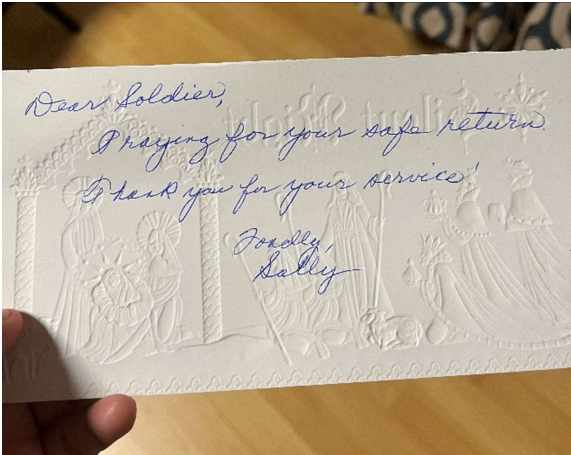 Silent Night
Dear Soldier,
Praying for your safe return.
Thank you for your service!
Fondly,
Sally